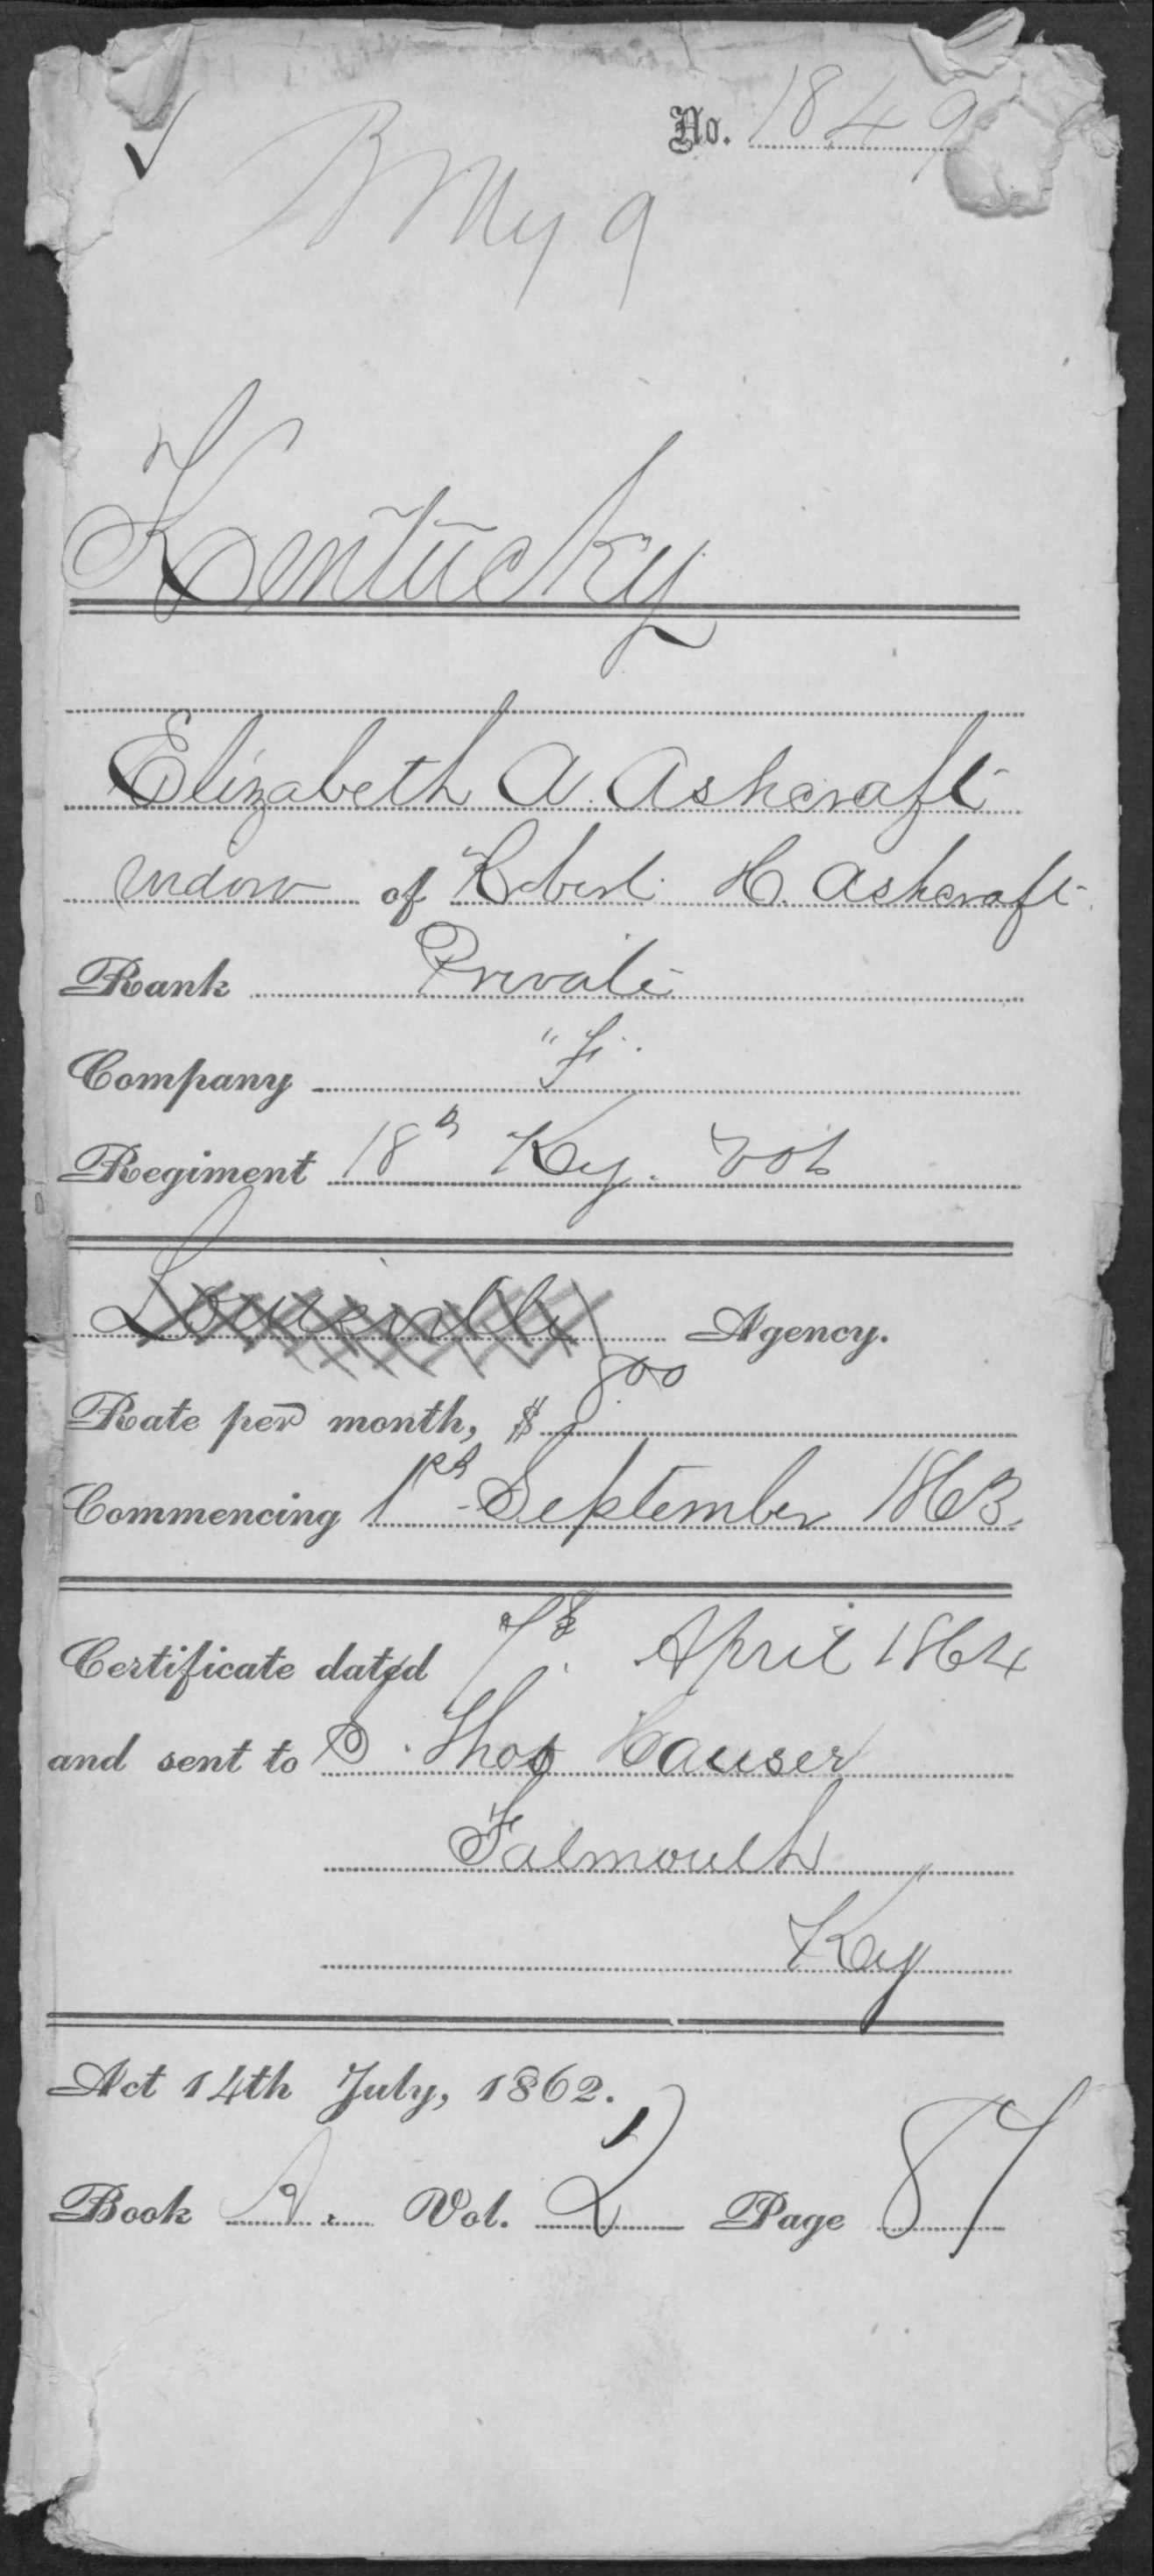 No. 1849
B My 9
Kentucky
Elizabeth A. Ashcraft
widow of Robert H. Ashcraft
Rank Private
Company "F"
Regiment 18th Ky. Vols
Louisville Agency.
Rate per month, $ 8.00
Commencing 1st September 1863.
Certificate dated 7th April 1864
and sent to S. Thos Hauser
Falmouth
Ky
Act 14th July, 1862.
Book Vol. 2 Page 87